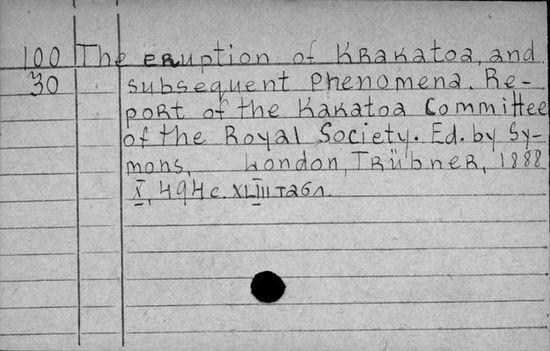 100 The eruption of Krakatoa, and
30 subsequent phenomena. Re-
port of the Kakatoa Committee
of the Royal Society. Ed. by Sy-
mons, London, Trübner, 1888
X, 494 c. XLIII табл.